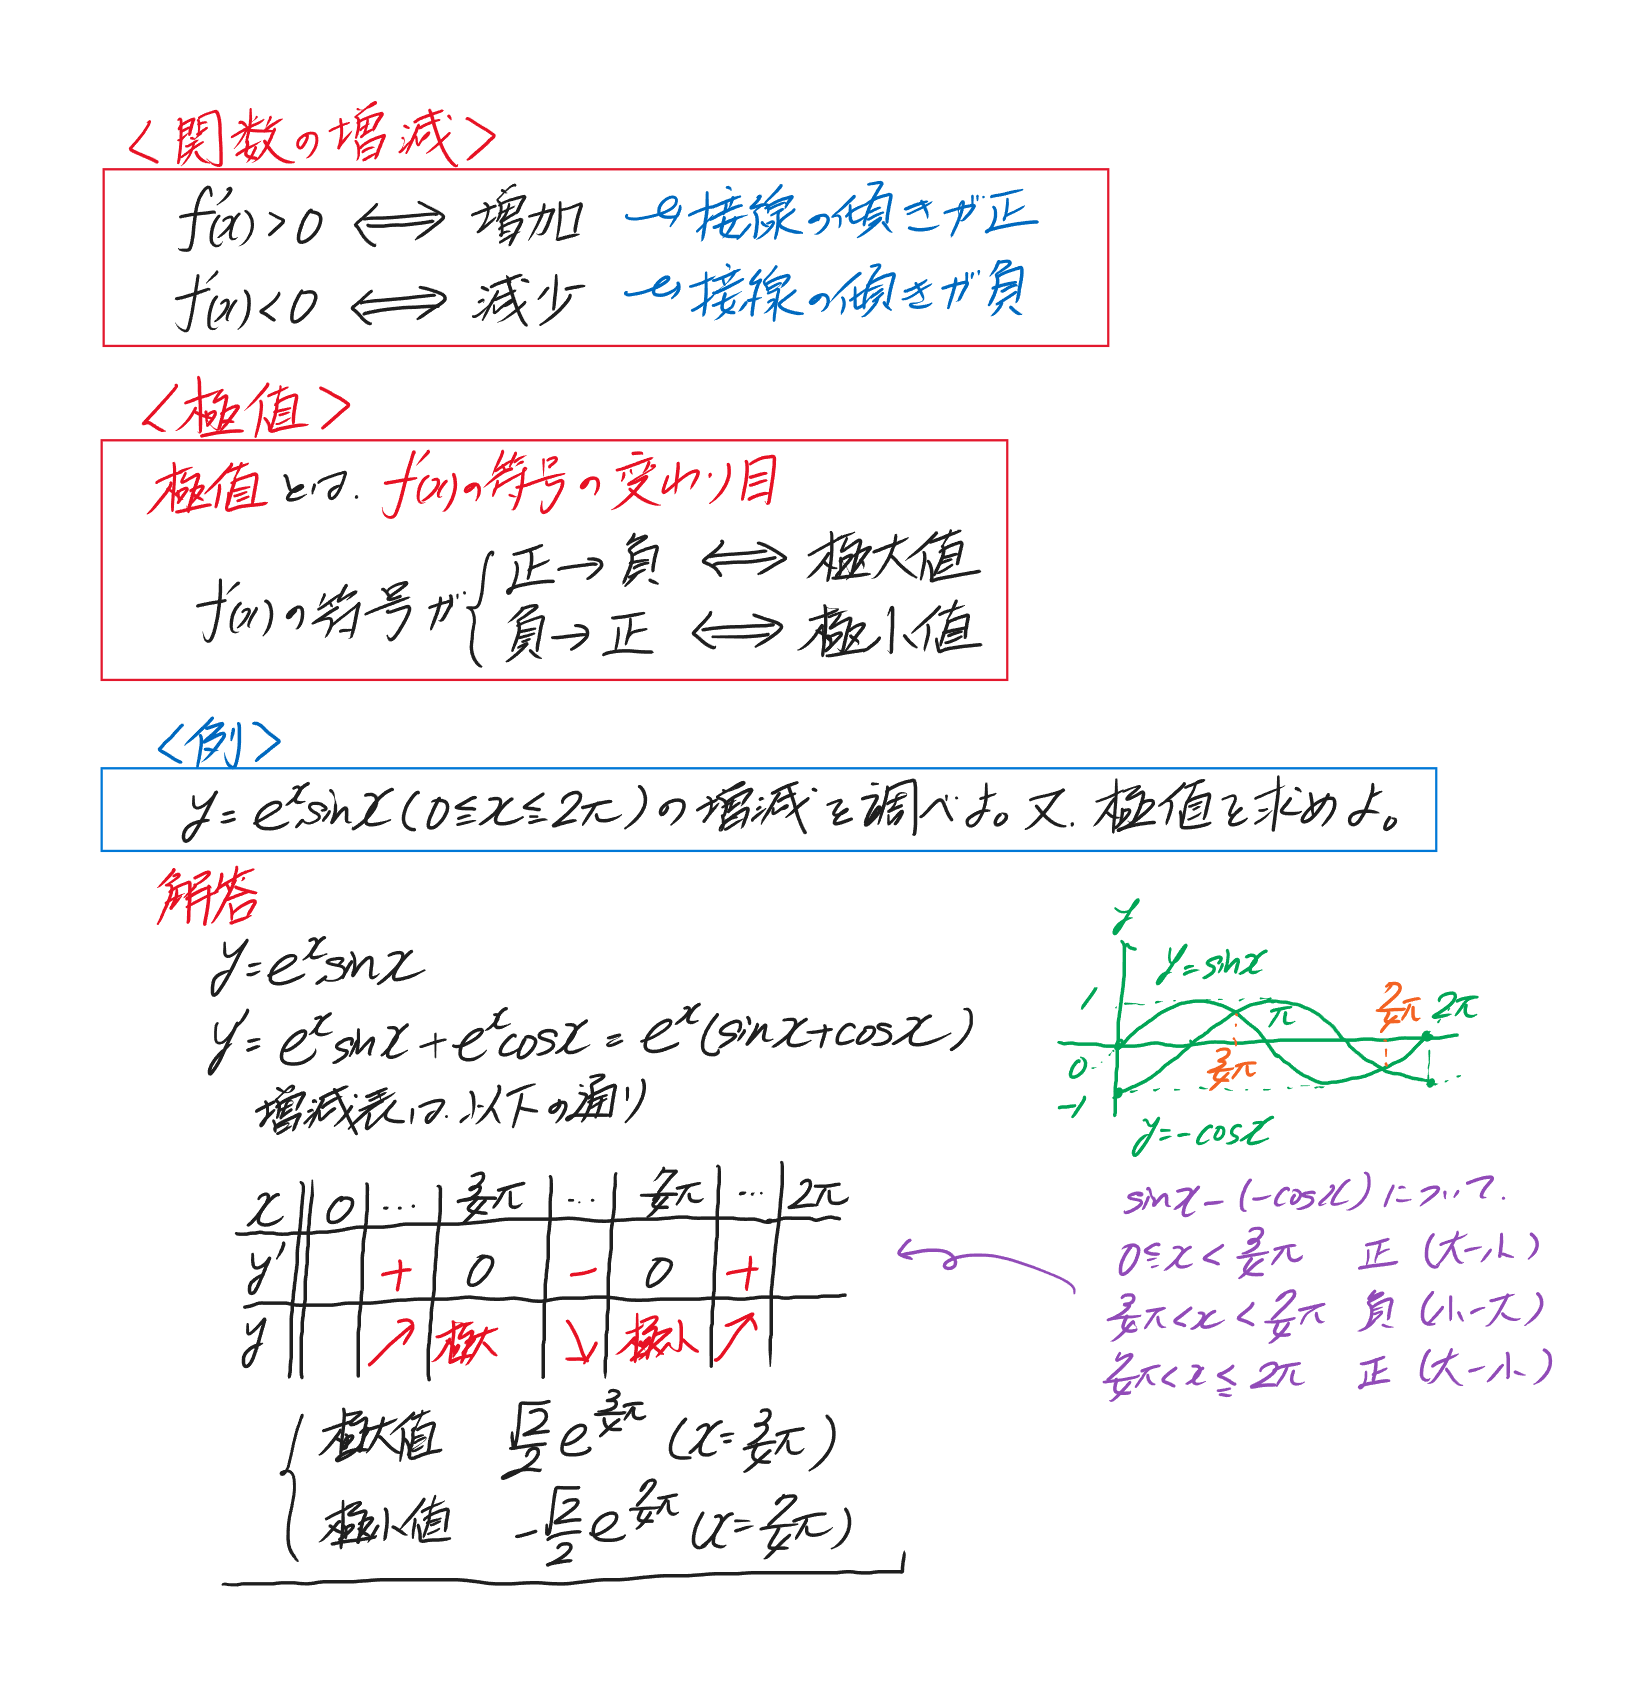 <関数の増減>
f'(x)>0 ⇔ 増加 → 接線の傾きが正
f'(x)<0 ⇔ 減少 → 接線の傾きが負
<極値>
極値とは、f'(x)の符号の変わり目
f'(x)の符号が{正→負 ⇔ 極大値
負→正 ⇔ 極小値
<例>
y=e^x sinx(0≦x≦2π)の増減を調べよ。又、極値を求めよ。
解答
y=e^x sinx
y'=e^x sinx+e^x cosx=e^x(sinx+cosx)
増減表は、以下の通り
x 0 … 3/4π … 7/4π … 2π
y' + 0 − 0 +
y ↗ 極大 ↘ 極小 ↗
極大値 √2/2 e^(3/4π) (x=3/4π)
極小値 −√2/2 e^(7/4π) (x=7/4π)
y
y=sinx
1
π
7/4π 2π
0
3/4π
−1
y=−cosx
sinx−(−cosx)について、
0≦x<3/4π 正 (大−小)
3/4π<x<7/4π 負 (小−大)
7/4π<x≦2π 正 (大−小)